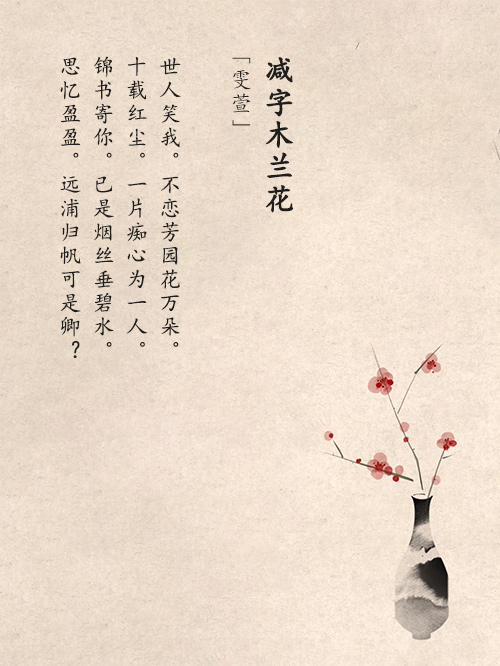 减字木兰花
「雯萱」
世人笑我。不恋芳园花万朵。
十载红尘。一片痴心为一人。
锦书寄你。已是烟丝垂碧水。
思忆盈盈。远浦归帆可是卿？